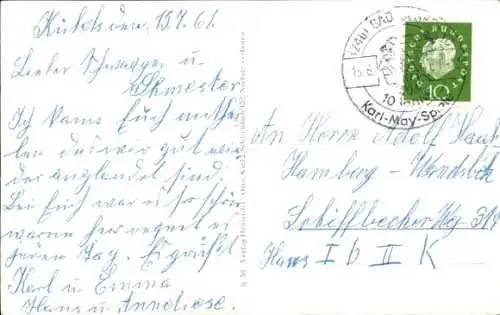 Kükels den 15.7.61.
Lieber Schwager u.
Schwester
Ich kann Euch mitthei-
len das wir gut wie-
der anglandet sind.
Bei Euch war es so schön
warm hier regnet es
jeden Tag. Es grüßt
Karl u. Emma
Hans u. Anneliese.
(24b) BAD
15.
10
Karl-May-Spiele
DEUTSCHE BUNDESPOST
10
An Herrn Adolf
Hamburg - Wandsbek
Schiffbecker Weg
Haus I b II K